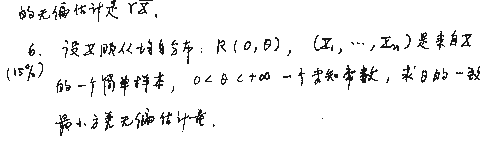 的无偏估计是 r𝑋̄.
6. 设X服从均匀分布: R(0,θ), (X₁, …, Xₙ) 是来自X
(15%) 的一个简单样本, 0<θ<+∞ 一个未知常数, 求θ的一致
最小方差无偏估计量.